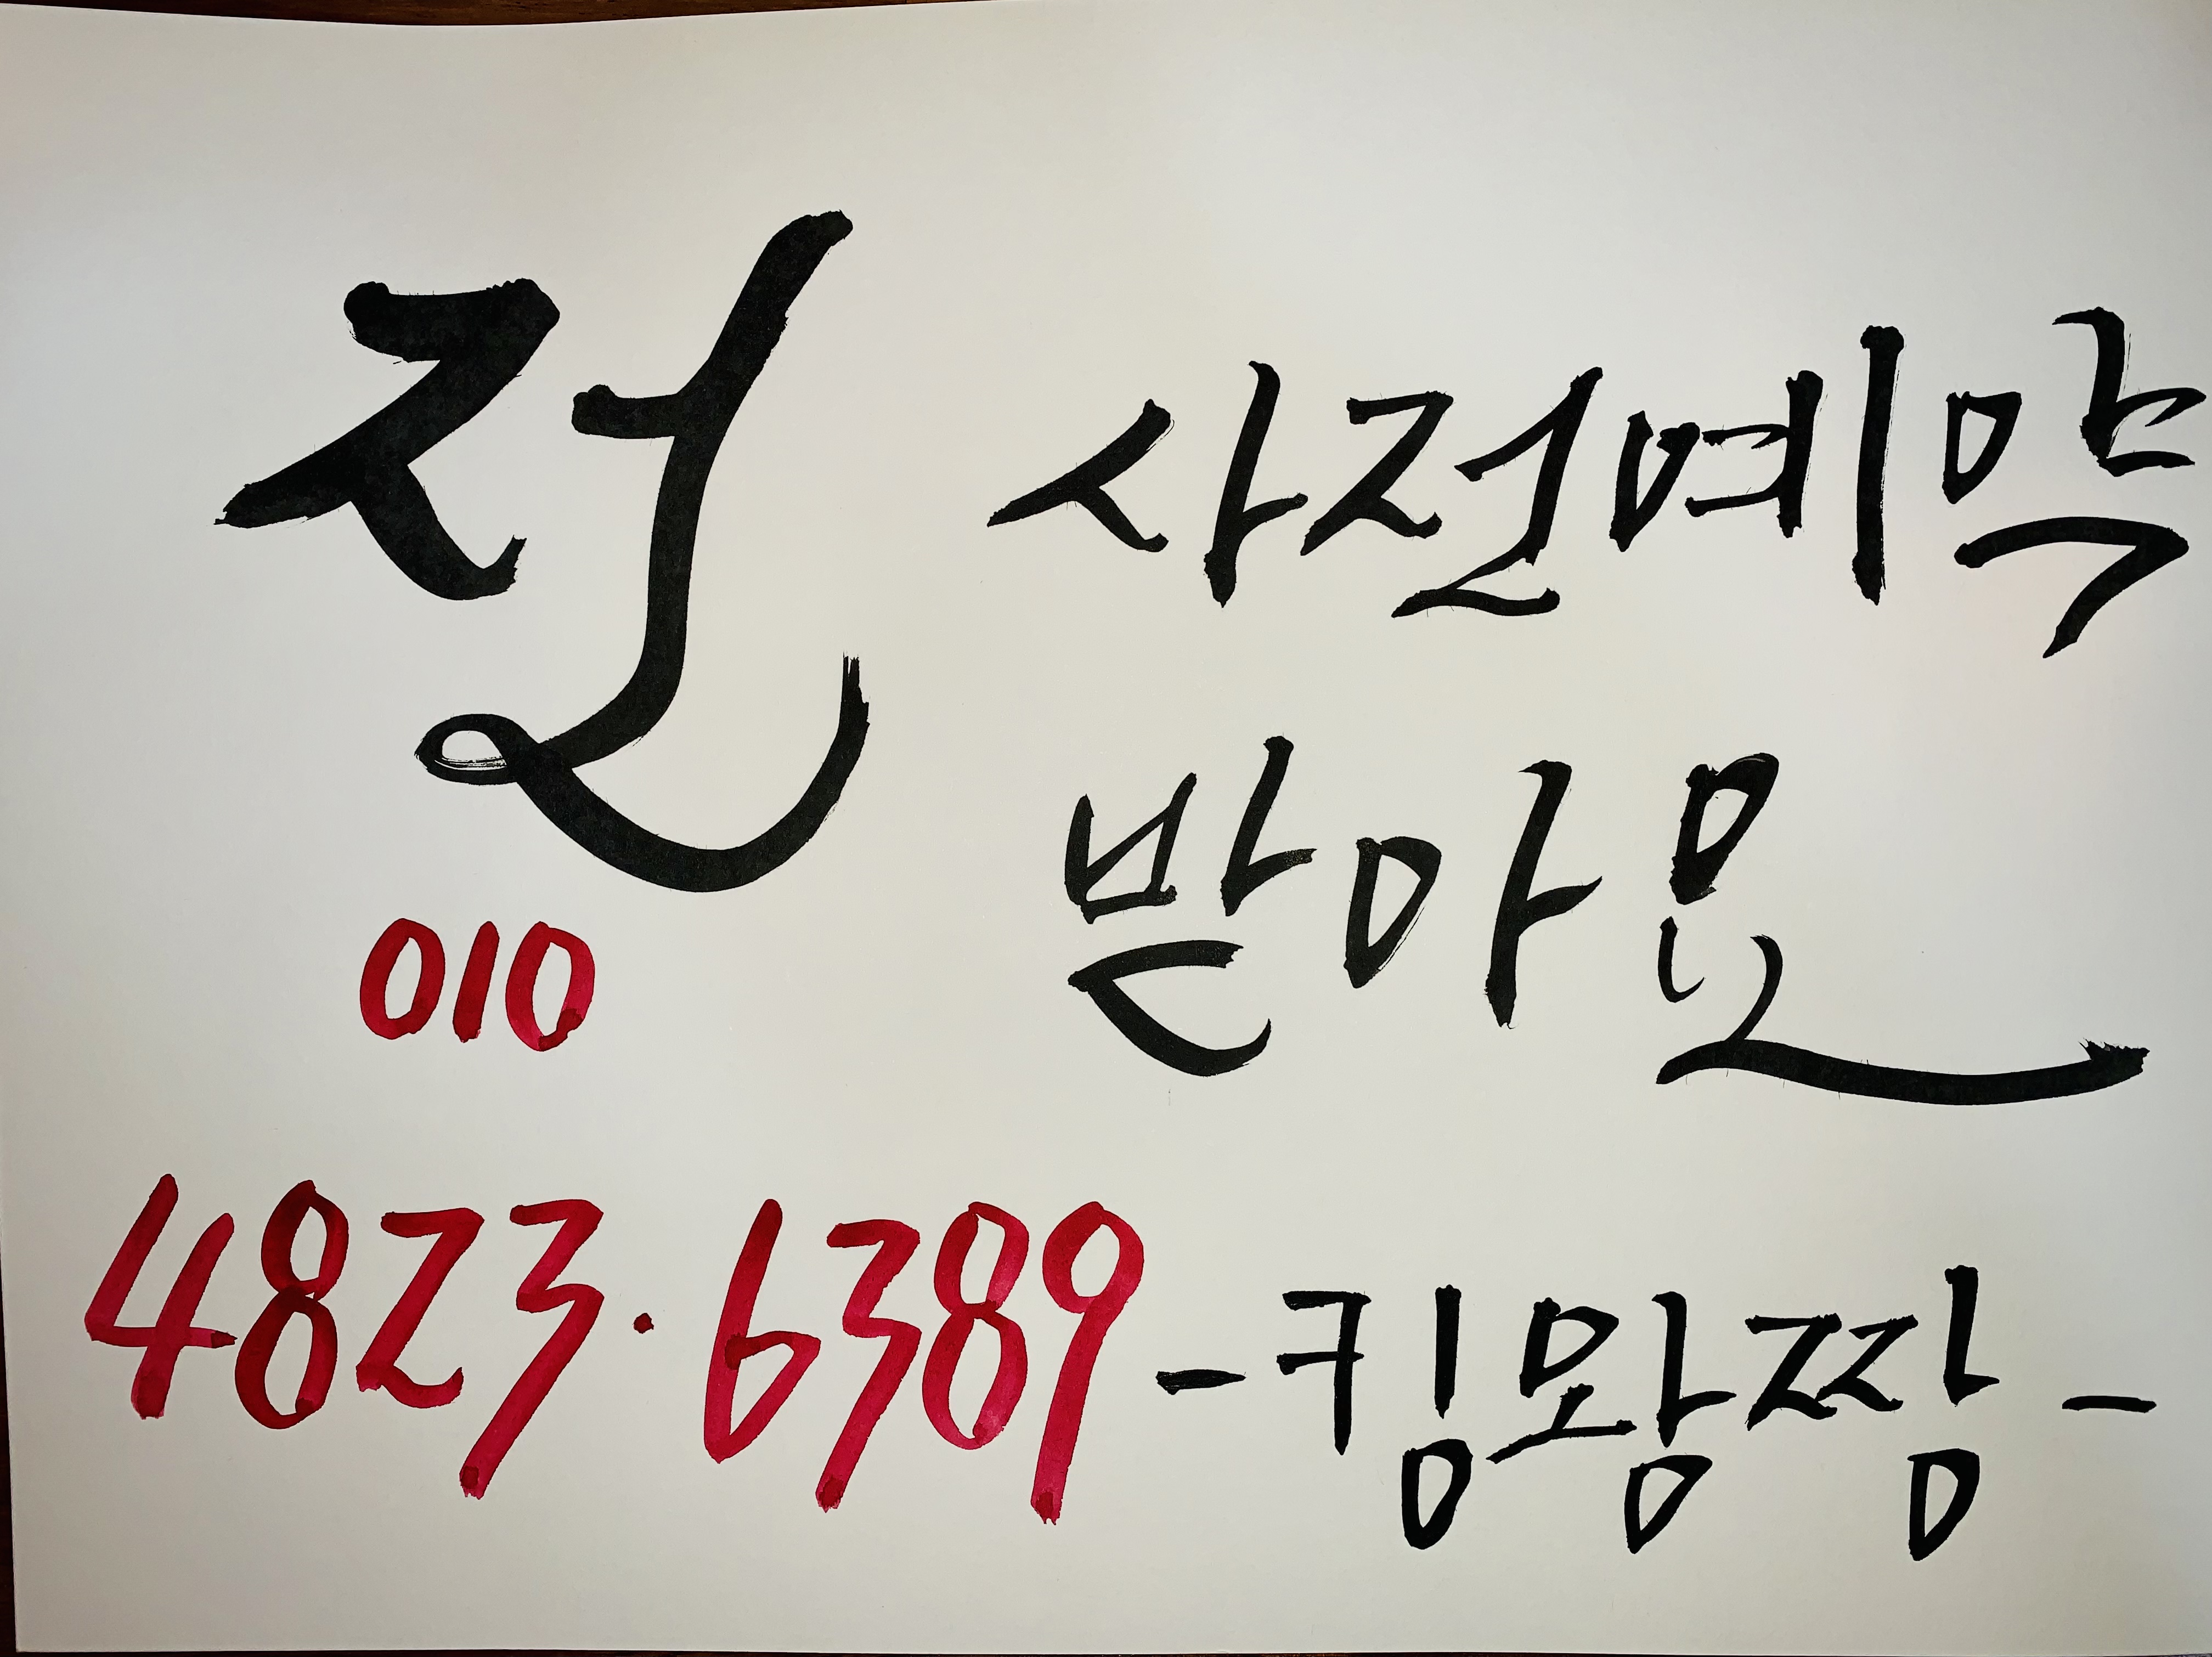 전
사전예약
받아요
010
4823·6389
-킹왕짱-